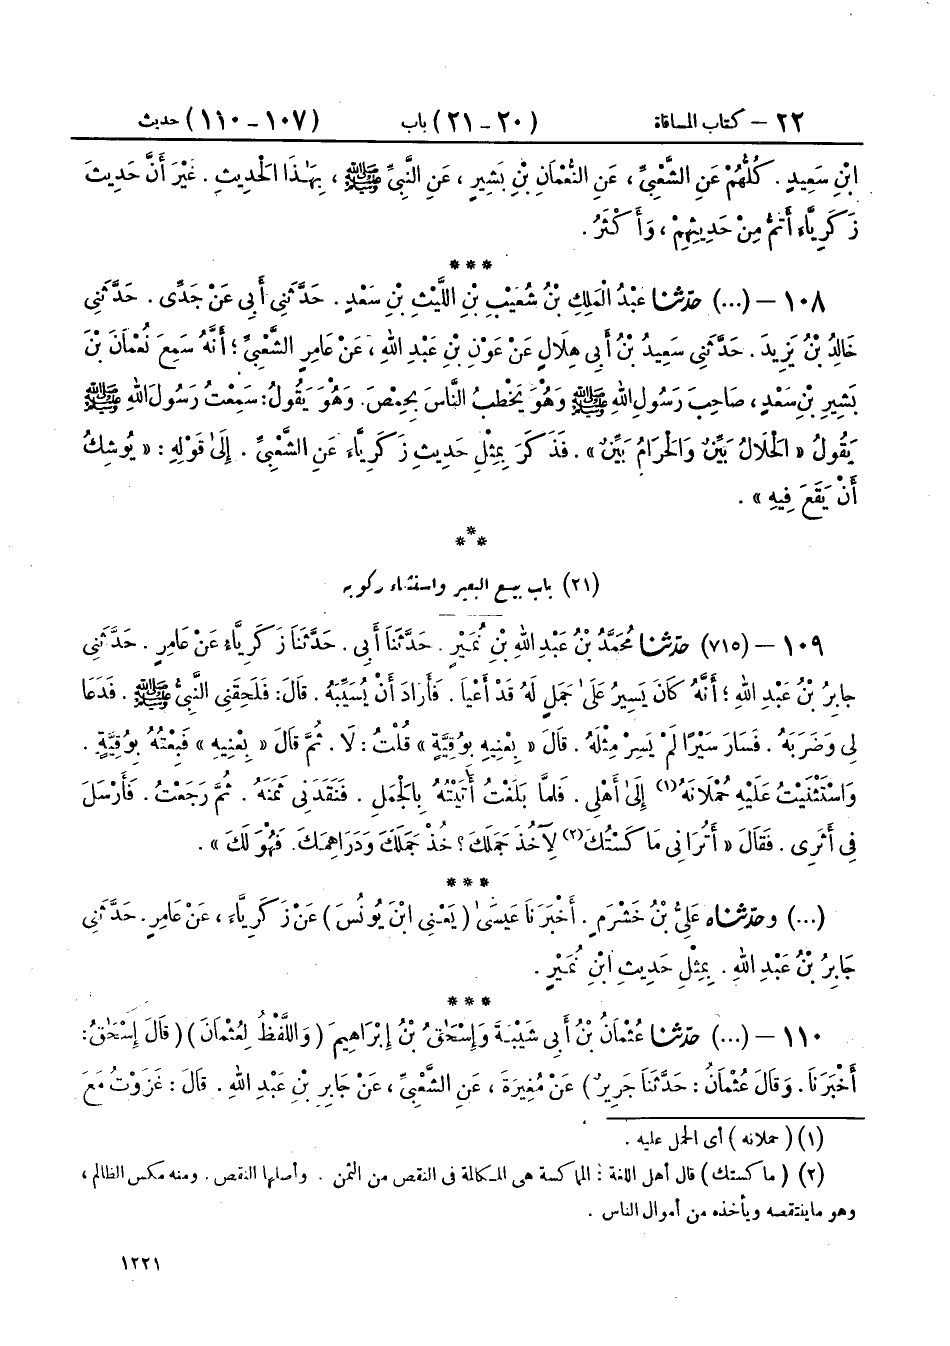 ٢٢ – كتاب المساقاة (٢٠ – ٢١) باب (١٠٧ – ١١٠) حديث
ابْنِ سَعِيدٍ . كُلُّهُمْ عَنِ الشَّعْبِيِّ ، عَنِ النُّعْمَانِ بْنِ بَشِيرٍ ، عَنِ النَّبِيِّ ﷺ ، بِهَـٰذَا الْحَدِيثِ . غَيْرَ أَنَّ حَدِيثَ
زَكَرِيَّاءَ أَتَمُّ مِنْ حَدِيثِهِمْ ، وَأَكْثَرُ .
* * *
١٠٨ – (...) حدّثنا عَبْدُ الْمَلِكِ بْنُ شُعَيْبِ بْنِ اللَّيْثِ بْنِ سَعْدٍ . حَدَّثَنِي أَبِي عَنْ جَدِّي . حَدَّثَنِي
خَالِدُ بْنُ يَزِيدَ . حَدَّثَنِي سَعِيدُ بْنُ أَبِي هِلَالٍ عَنْ عَوْنِ بْنِ عَبْدِ اللهِ ، عَنْ عَامِرٍ الشَّعْبِيِّ ؛ أَنَّهُ سَمِعَ نُعْمَانَ بْنَ
بَشِيرِ بْنِ سَعْدٍ ، صَاحِبَ رَسُولِ اللهِ ﷺ وَهُوَ يَخْطُبُ النَّاسَ بِحِمْصَ . وَهُوَ يَقُولُ : سَمِعْتُ رَسُولَ اللهِ ﷺ
يَقُولُ « الْحَلَالُ بَيِّنٌ وَالْحَرَامُ بَيِّنٌ » . فَذَكَرَ بِمِثْلِ حَدِيثِ زَكَرِيَّاءَ عَنِ الشَّعْبِيِّ . إِلَى قَوْلِهِ : « يُوشِكُ
أَنْ يَقَعَ فِيهِ » .
* * *
(٢١) باب بيع البعير واستثناء ركوبه
١٠٩ – (٧١٥) حدّثنا مُحَمَّدُ بْنُ عَبْدِ اللهِ بْنِ نُمَيْرٍ . حَدَّثَنَا أَبِي . حَدَّثَنَا زَكَرِيَّاءُ عَنْ عَامِرٍ . حَدَّثَنِي
جَابِرُ بْنُ عَبْدِ اللهِ ؛ أَنَّهُ كَانَ يَسِيرُ عَلَى جَمَلٍ لَهُ قَدْ أَعْيَا . فَأَرَادَ أَنْ يُسَيِّبَهُ . قَالَ : فَلَحِقَنِي النَّبِيُّ ﷺ . فَدَعَا
لِي وَضَرَبَهُ . فَسَارَ سَيْرًا لَمْ يَسِرْ مِثْلَهُ . قَالَ « بِعْنِيهِ بِوُقِيَّةٍ » قُلْتُ : لَا . ثُمَّ قَالَ « بِعْنِيهِ » فَبِعْتُهُ بِوُقِيَّةٍ .
وَاسْتَثْنَيْتُ عَلَيْهِ حُمْلَانَهُ(١) إِلَى أَهْلِي . فَلَمَّا بَلَغْتُ أَتَيْتُهُ بِالْجَمَلِ . فَنَقَدَنِي ثَمَنَهُ . ثُمَّ رَجَعْتُ . فَأَرْسَلَ
فِي أَثَرِي . فَقَالَ « أَتُرَانِي مَاكَسْتُكَ(٢) لِآخُذَ جَمَلَكَ ؟ خُذْ جَمَلَكَ وَدَرَاهِمَكَ . فَهُوَ لَكَ » .
* * *
(...) وحدّثناه عَلِيُّ بْنُ خَشْرَمٍ . أَخْبَرَنَا عِيسَى ( يَعْنِي ابْنَ يُونُسَ ) عَنْ زَكَرِيَّاءَ ، عَنْ عَامِرٍ . حَدَّثَنِي
جَابِرُ بْنُ عَبْدِ اللهِ . بِمِثْلِ حَدِيثِ ابْنِ نُمَيْرٍ .
* * *
١١٠ – (...) حدّثنا عُثْمَانُ بْنُ أَبِي شَيْبَةَ وَإِسْحَاقُ بْنُ إِبْرَاهِيمَ ( وَاللَّفْظُ لِعُثْمَانَ ) ( قَالَ إِسْحَاقُ :
أَخْبَرَنَا . وَقَالَ عُثْمَانُ : حَدَّثَنَا جَرِيرٌ ) عَنْ مُغِيرَةَ ، عَنِ الشَّعْبِيِّ ، عَنْ جَابِرِ بْنِ عَبْدِ اللهِ . قَالَ : غَزَوْتُ مَعَ
(١) ( حملانه ) أى الحمل عليه .
(٢) ( ماكستك ) قال أهل اللغة : المماكسة هى المكالمة فى النقص من الثمن . وأصلها النقص . ومنه مكس الظالم ،
وهو ماينتقصه ويأخذه من أموال الناس .
١٢٢١